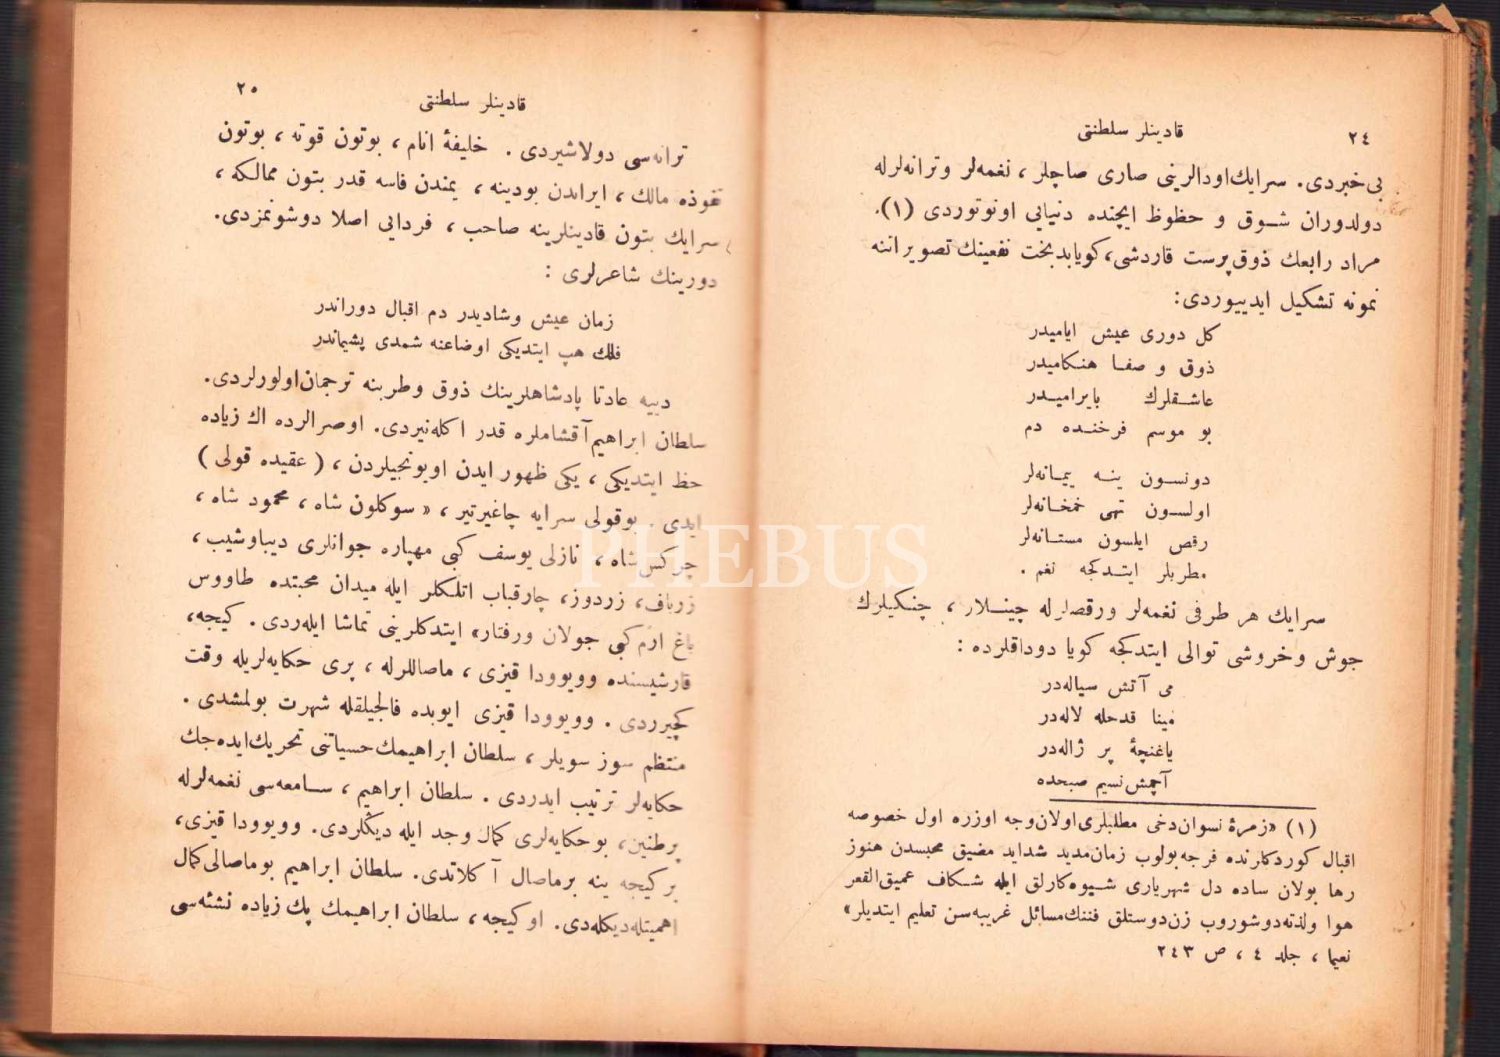 ٢٤
قادینلر سلطنتی
بی خبردی. سرایك اودالرینی صاری صاچلر، نغمه‌لر و ترانه‌لرله
دولدوران شوق و حظوظ ایچنده دنیایی اونوتوردی (١).
مراد رابعك ذوق‌پرست قاردشی، كویا بدبخت نفعینك تصویراتنه
نمونه تشكیل ایدییوردی:
كل دوری عیش ایامیدر
ذوق و صفا هنكامیدر
عاشقلرك بایرامیدر
بو موسم فرخنده دم
دونسون ینه پیمانه‌لر
اولسون تهی خمخانه‌لر
رقص ایلسون مستانه‌لر
مطربلر ایتدكجه نغم.
سرایك هر طرفی نغمه‌لر ورقصلرله چینلار، چنكیلرك
جوش و خروشی توالی ایتدكجه كویا دوداقلرده:
می آتش سیاله‌در
مینا قدحله لاله‌در
یاغنچۀ پر ژاله‌در
آچمش نسیم صبحده
(١) «زمرۀ نسوان دخی مطلبلری اولان وجه اوزره اول خصوصه
اقبال كوردكارنده فرجه‌بولوب زمان مدید شداید مضیق محبسدن هنوز
رها بولان ساده دل شهریاری شیوه‌كارلق ایله شكاف عمیق‌القعر
هوا ولذته‌دوشوروب زن‌دوستلق فننك مسائل غریبه‌سن تعلیم ایتدیلر»
نعیما، جلد ٤، ص ٢٤٣
٢٥
قادینلر سلطنتی
ترانه‌سی دولاشیردی. خلیفۀ انام، بوتون قوته، بوتون
نفوذه مالك، ایراندن بودینه، یمندن فاسه قدر بتون ممالكه،
سرایك بتون قادینلرینه صاحب، فردایی اصلا دوشونمزدی.
دورینك شاعرلری:
زمان عیش وشادیدر دم اقبال دوراندر
فلك هپ ایتدیكی اوضاعنه شمدی پشیماندر
دییه عادتا پادشاهلرینك ذوق وطربنه ترجمان‌اولورلردی.
سلطان ابراهیم آقشاملره قدر اكله‌نیردی. اوصرالرده اك زیاده
حظ ایتدیكی، یكی ظهور ایدن اویونجیلردن، (عقیده قولی)
ایدی. بوقولی سرایه چاغیرتیر، «سوكلون شاه، محمود شاه،
چركس شاه، نازلی یوسف كبی مهپاره جوانلری دیباوشیب،
زرباف، زردوز، چارقباب اتلكلر ایله میدان محبتده طاووس
باغ ارم كبی جولان ورفتار» ایتدكلرینی تماشا ایله‌ردی. كیجه،
قارشیسنده وویوودا قیزی، ماصاللرله، پری حكایه‌لریله وقت
كچیرردی. وویوودا قیزی ایوبده فالجیلقله شهرت بولمشدی.
منتظم سوز سویلر، سلطان ابراهیمك‌حسیاتنی تحریك‌ایده‌جك
حكایه‌لر ترتیب ایدردی. سلطان ابراهیم، سامعه‌سی نغمه‌لرله
پرطنین، بوحكایه‌لری كمال وجد ایله دیكلردی. وویوودا قیزی،
بر كیجه ینه برماصال آ كلاتدی. سلطان ابراهیم بوماصالی كمال
اهمیتله‌دیكله‌دی. او كیجه، سلطان ابراهیمك پك زیاده نشئه‌سی
PHEBUS